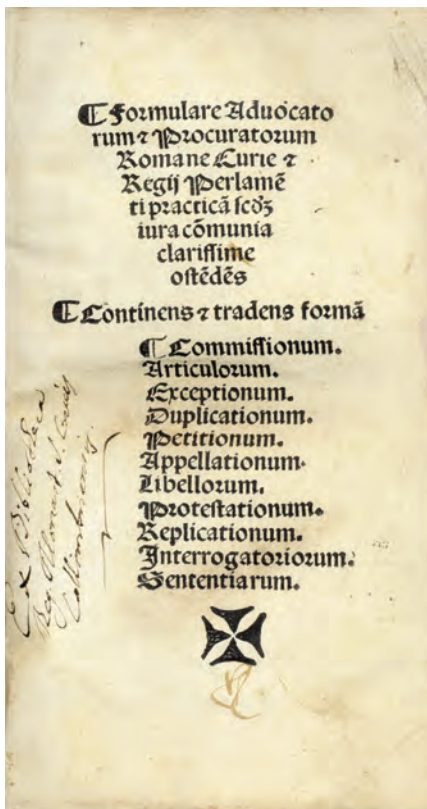 ¶ Formulare Aduocato
rum ⁊ Procuratorum
Romane Curie ⁊
Regij Perlamē
ti practicā scd̄ꝫ
iura cōmunia
clarissime
ostēdēs
¶ Continens ⁊ tradens formā
¶ Commissionum.
Articulorum.
Exceptionum.
Duplicationum.
Petitionum.
Appellationum.
Libellorum.
Protestationum.
Replicationum.
Interrogatoriorum.
Sententiarum.
Ex Bibliotheca